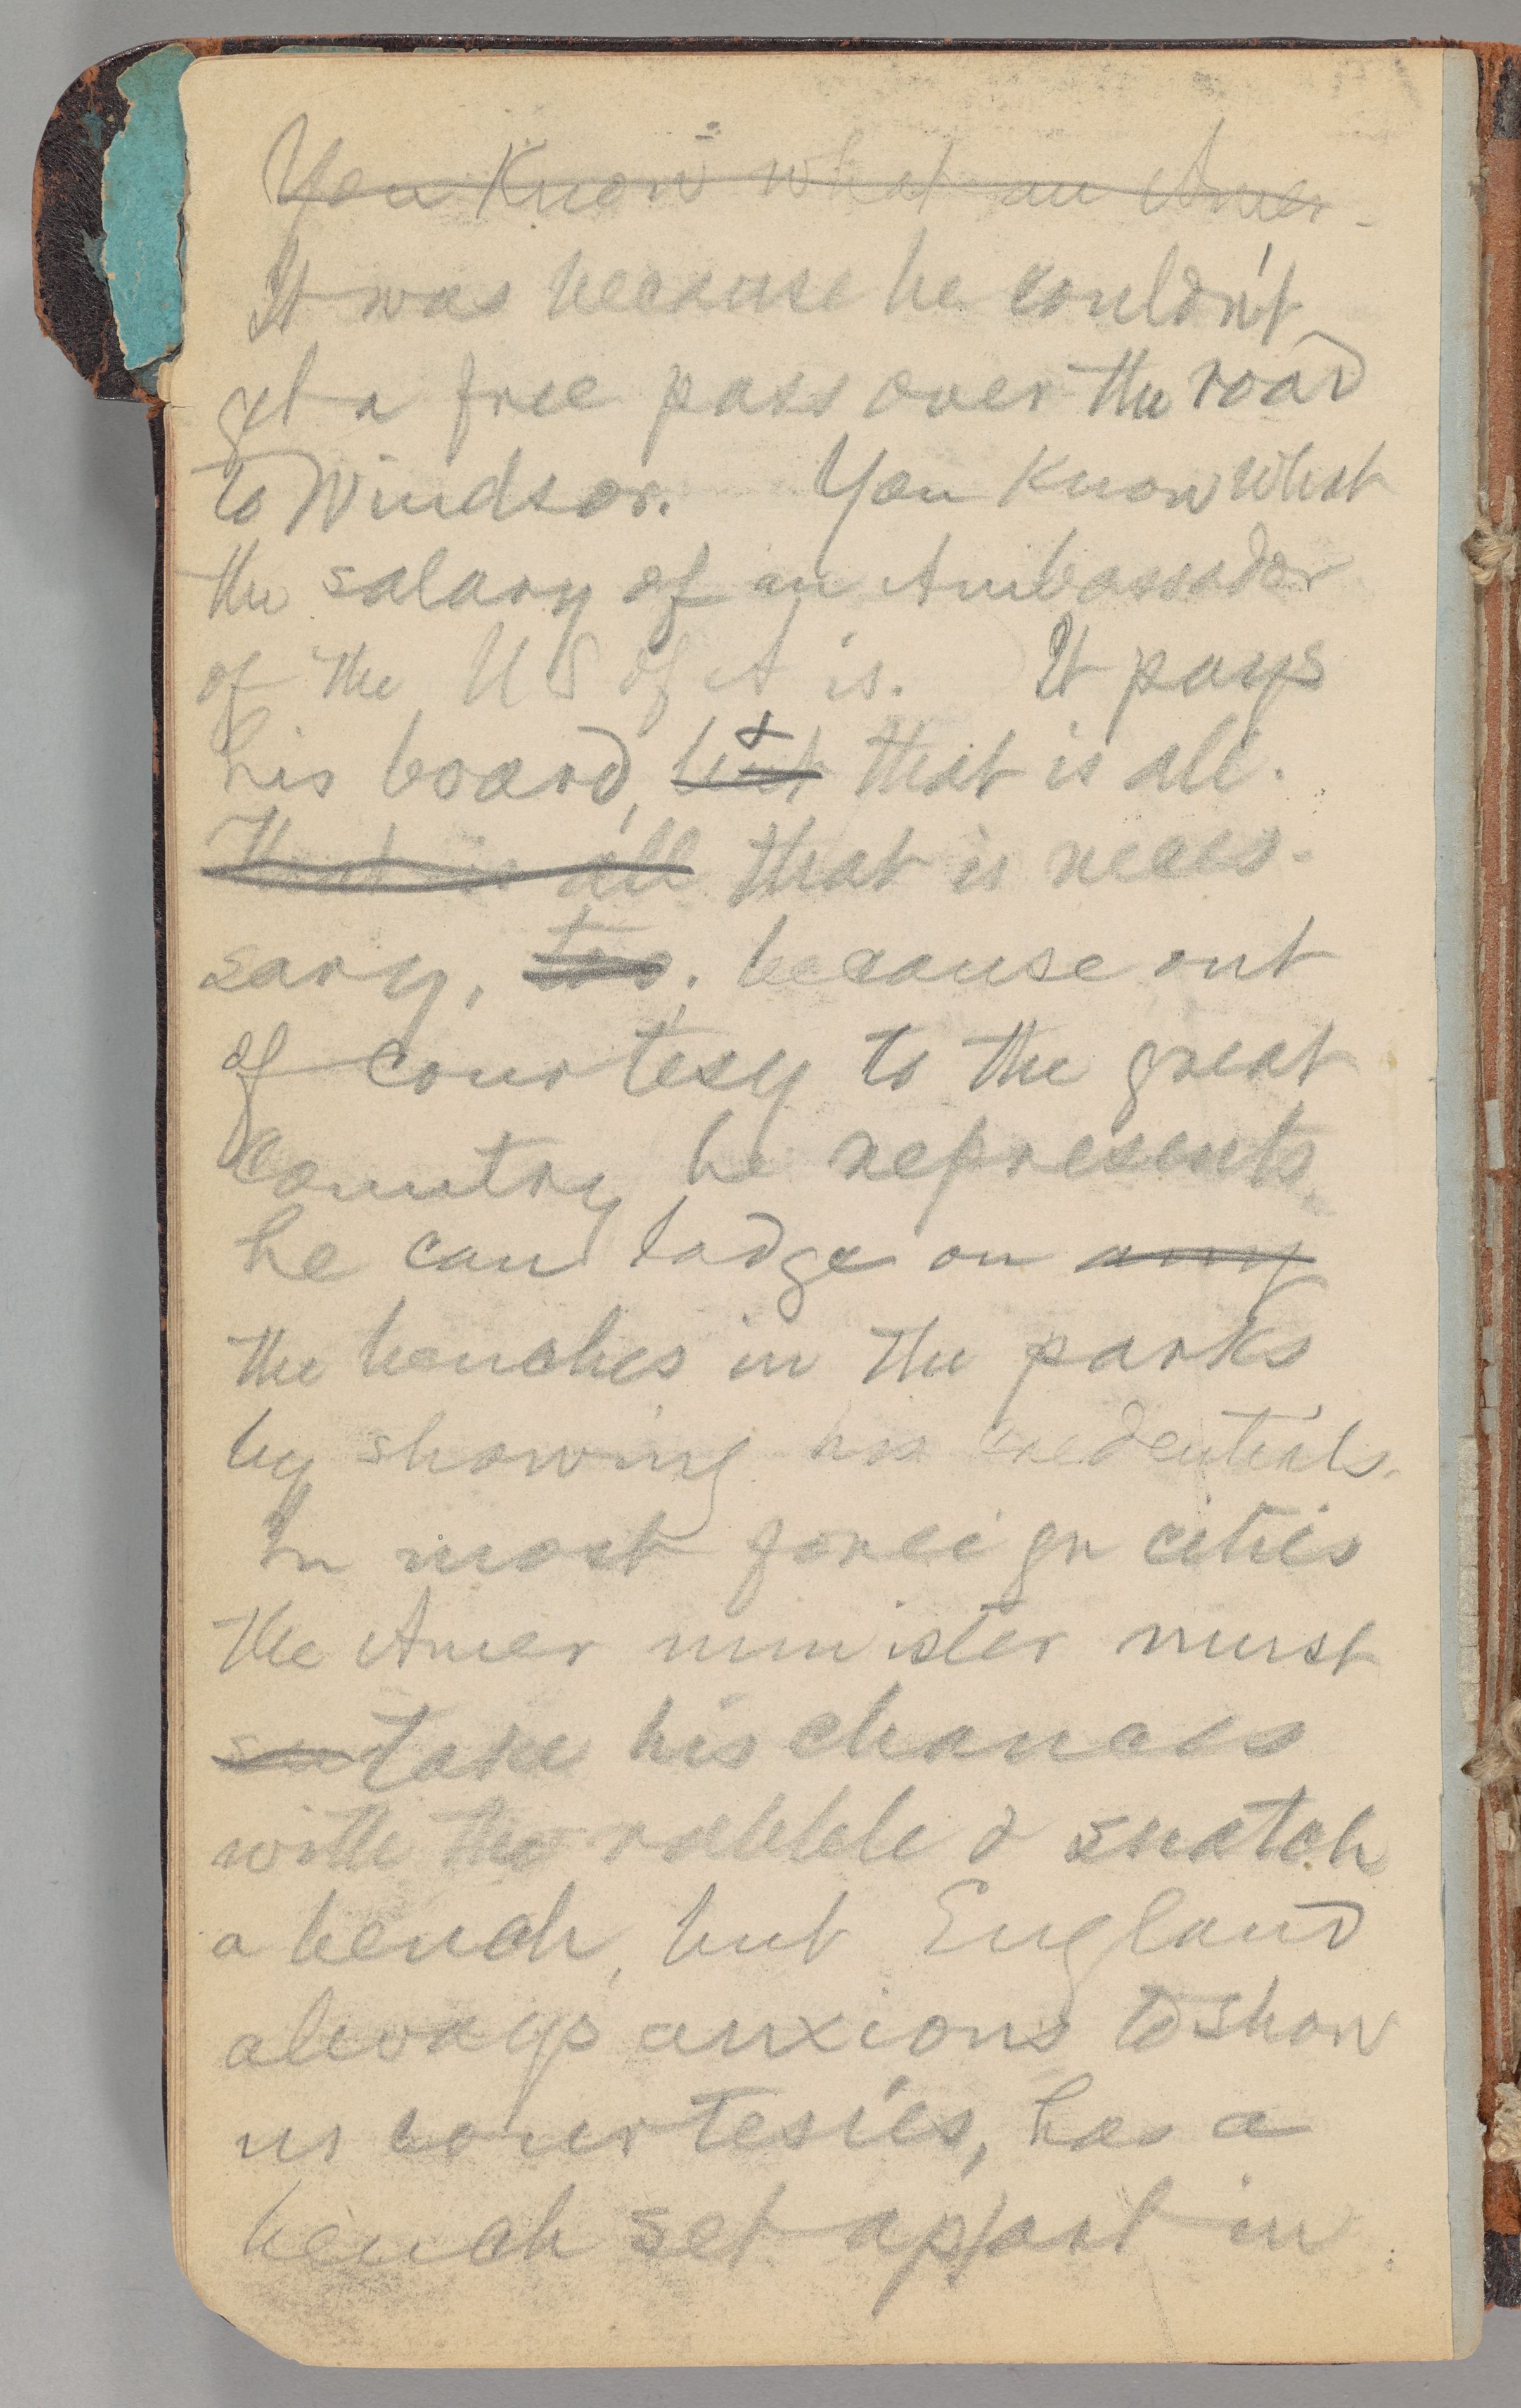 You know what an Amer-
It was because he couldn't
get a free pass over the road
to Windsor. You know what
the salary of an Ambassador
of the U S of A is. It pays
his board, but & that is all.
That is all that is neces-
sary, too, because out
of courtesy to the great
country he represents,
he can lodge on any
the benches in the parks
by showing his credentials.
In most foreign cities
the Amer minister must
su take his chances
with the rabble & snatch
a bench, but England
always anxious to show
us courtesies, has a
bench set apart in